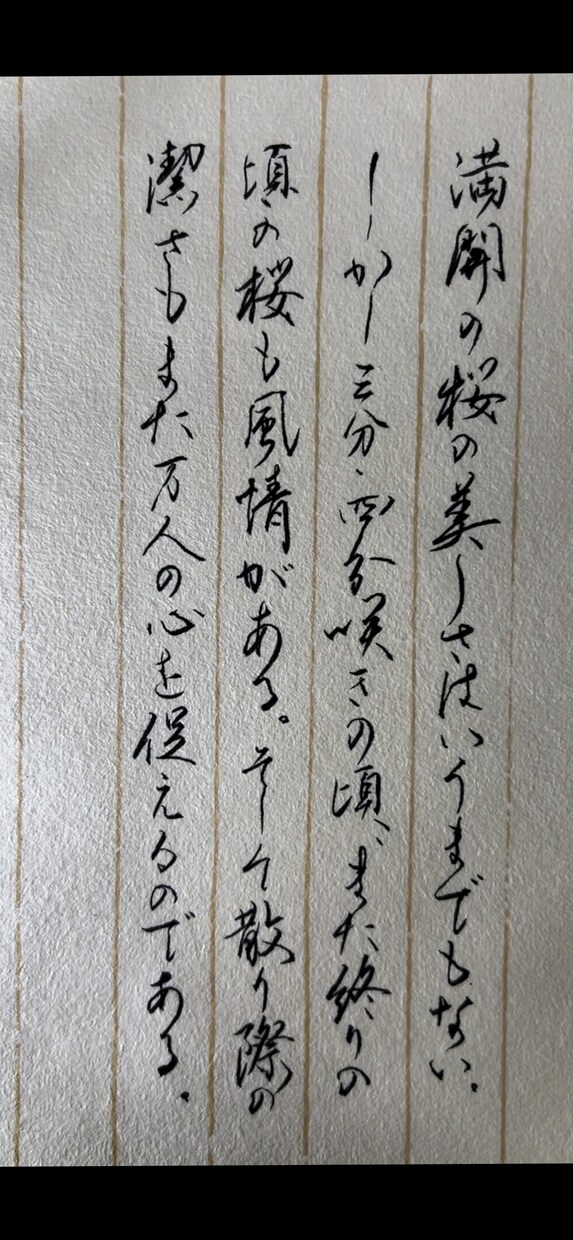 満開の桜の美しさはいうまでもない。
しかし三分、四分咲きの頃、また終りの
頃の桜も風情がある。そして散り際の
潔さもまた万人の心を促えるのである。